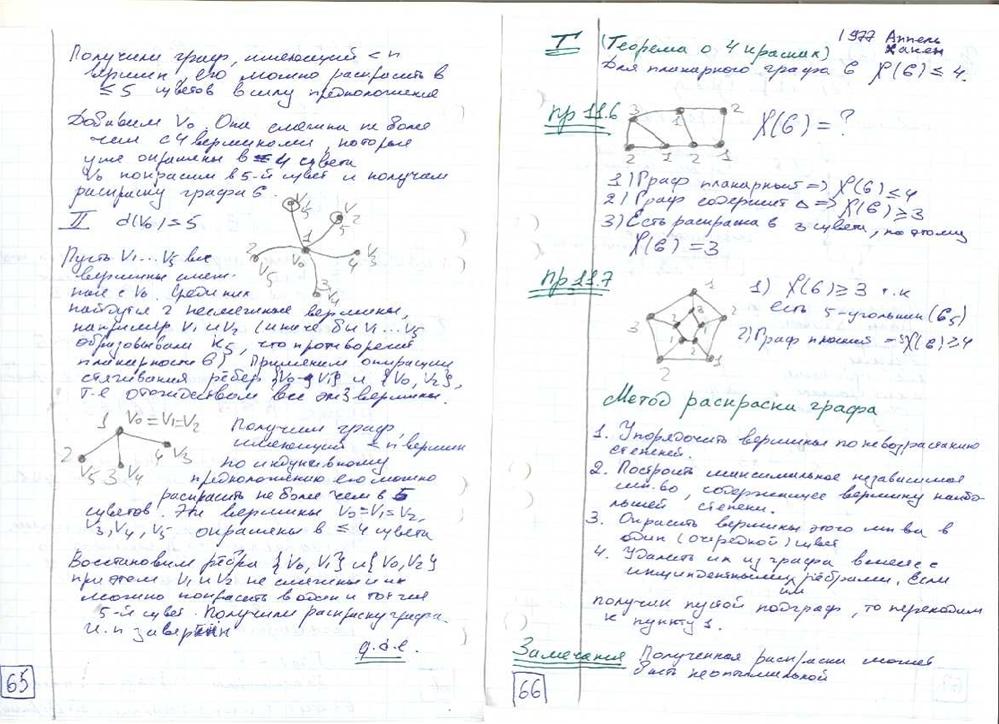 Получили граф, имеющий < n
вершин, его можно раскрасить в
≤ 5 цветов в силу предположения
Добавим V₀. Она смежна не более
чем с 4 вершинами, которые
уже окрашены в 4 цвета
V₀ покрасим в 5-й цвет и получаем
раскраску графа G.
II d(V₀) = 5
V₅
V
5
2
1
V₀
2
V₅
4
V₃
3
V₄
Пусть V₁...V₅ все
вершины смеж-
ные с V₀. Среди них
найдутся 2 несмежные вершины,
например V₁ и V₂ (иначе бы V₁...V₅
образовывали K₅, что противоречит
планарности G) Применим операцию
стягивания рёбер {V₀, V₁} и {V₀, V₂},
т.е отождествим все эти 3 вершины.
1 V₀ = V₁ = V₂
2 V₅ 3 V₄ 4 V₃
Получили граф
имеющий ≤ n вершин
по индуктивному
предположению его можно
раскрасить не более чем в 5
цветов. Эти вершины V₀=V₁=V₂,
V₃, V₄, V₅ окрашены в ≤ 4 цвета
Восстановим рёбра {V₀, V₁} и {V₀, V₂}
при этом V₁ и V₂ не смежные и их
можно покрасить в один и тот же
5-й цвет. Получили раскраску графа.
И.п завершён
q.d.e.
65
T (Теорема о 4 красках)
1977 Аппель
Хакен
Для планарного графа G χ(G) ≤ 4.
Пр 11.6
3 1 2
2 1 2 1
χ(G) = ?
1) Граф планарный => χ(G) ≤ 4
2) Граф содержит Δ => χ(G) ≥ 3
3) Есть раскраска в 3 цвета, поэтому
χ(G) = 3
Пр 11.7
1
3
2
2
3
2
1
2
2
1
1) χ(G) ≥ 3 т.к
есть 5-угольник (C₅)
2) Граф плоский => χ(G) ≤ 4
Метод раскраски графа
1. Упорядочить вершины по невозрастанию
степеней.
2. Построить максимальное независимое
мн-во, содержащее вершину наибо-
льшей степени.
3. Окрасить вершины этого мн-ва в
один (очередной) цвет
4. Удалить их из графа вместе с
инцидентными им рёбрами. Если
получим пустой подграф, то переходим
к пункту 1.
Замечание Полученная раскраска может
быть неоптимальной
66